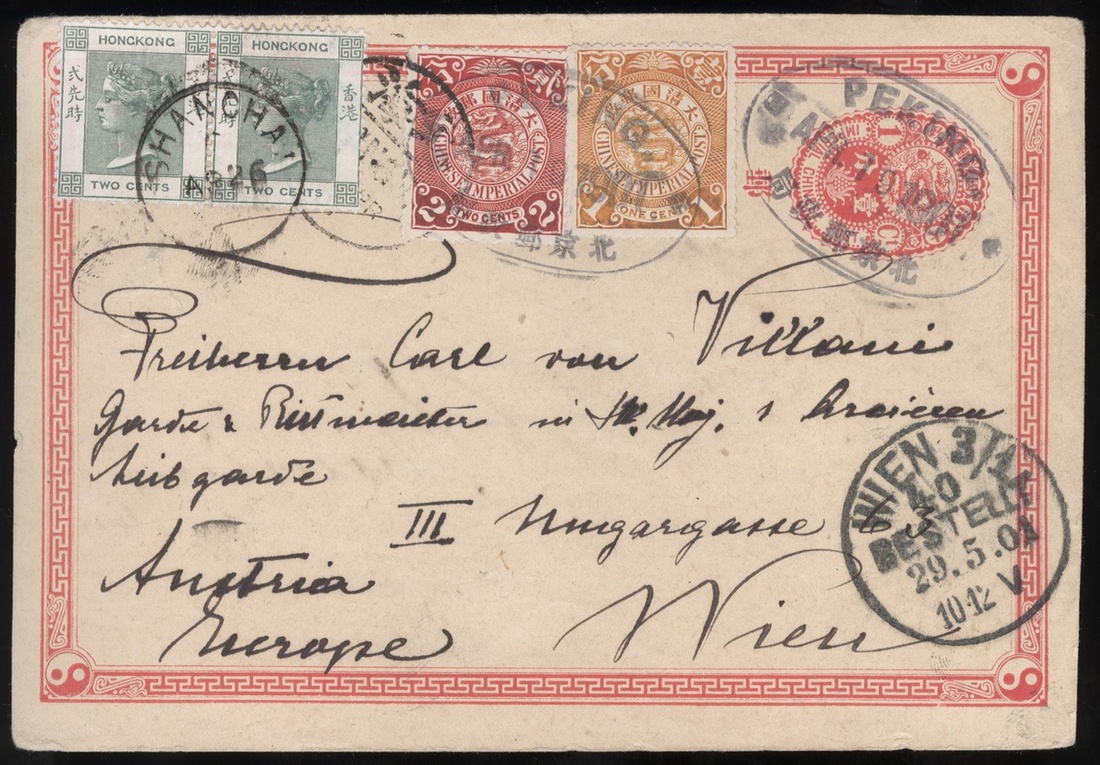 HONGKONG
HONGKONG
香港
TWO CENTS
TWO CENTS
SHANGHAI
AP 26
大清國郵政
CHINESE IMPERIAL POST
2 TWO CENTS 2
大清國郵政
CHINESE IMPERIAL POST
1 ONE CENT 1
北京郵
PEKING
北京郵政局
Freiherrn Carl von Villani
Garde & Rittmeister in
Leibgarde
III Ungargasse
Austria
Europe
Wien
WIEN 3/1
40
BESTELLT
29.5.01
10-12 V